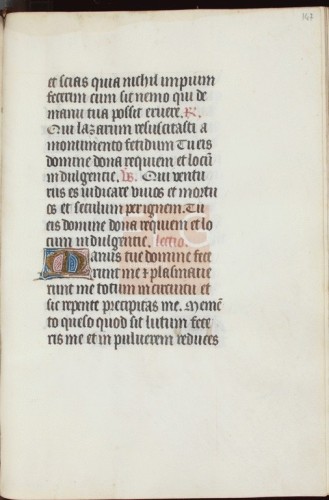 141
et scias quia nichil impium
fecerim cum sit nemo qui de
manu tua possit eruere. R.
Qui lazarum resuscitasti a
monumento fetidum Tu eis
domine dona requiem et locū
indulgentie. Vs. Qui ventu
rus es iudicare viuos et mortu
os et seculum per ignem. Tu
eis domine dona requiem et lo
cum indulgentie. lectio.
Manus tue domine fece
runt me et plasmaue
runt me totum in circuitu et
sic repente precipitas me. Memē
to queso quod sit lutum fece
ris me et in puluerem reduces